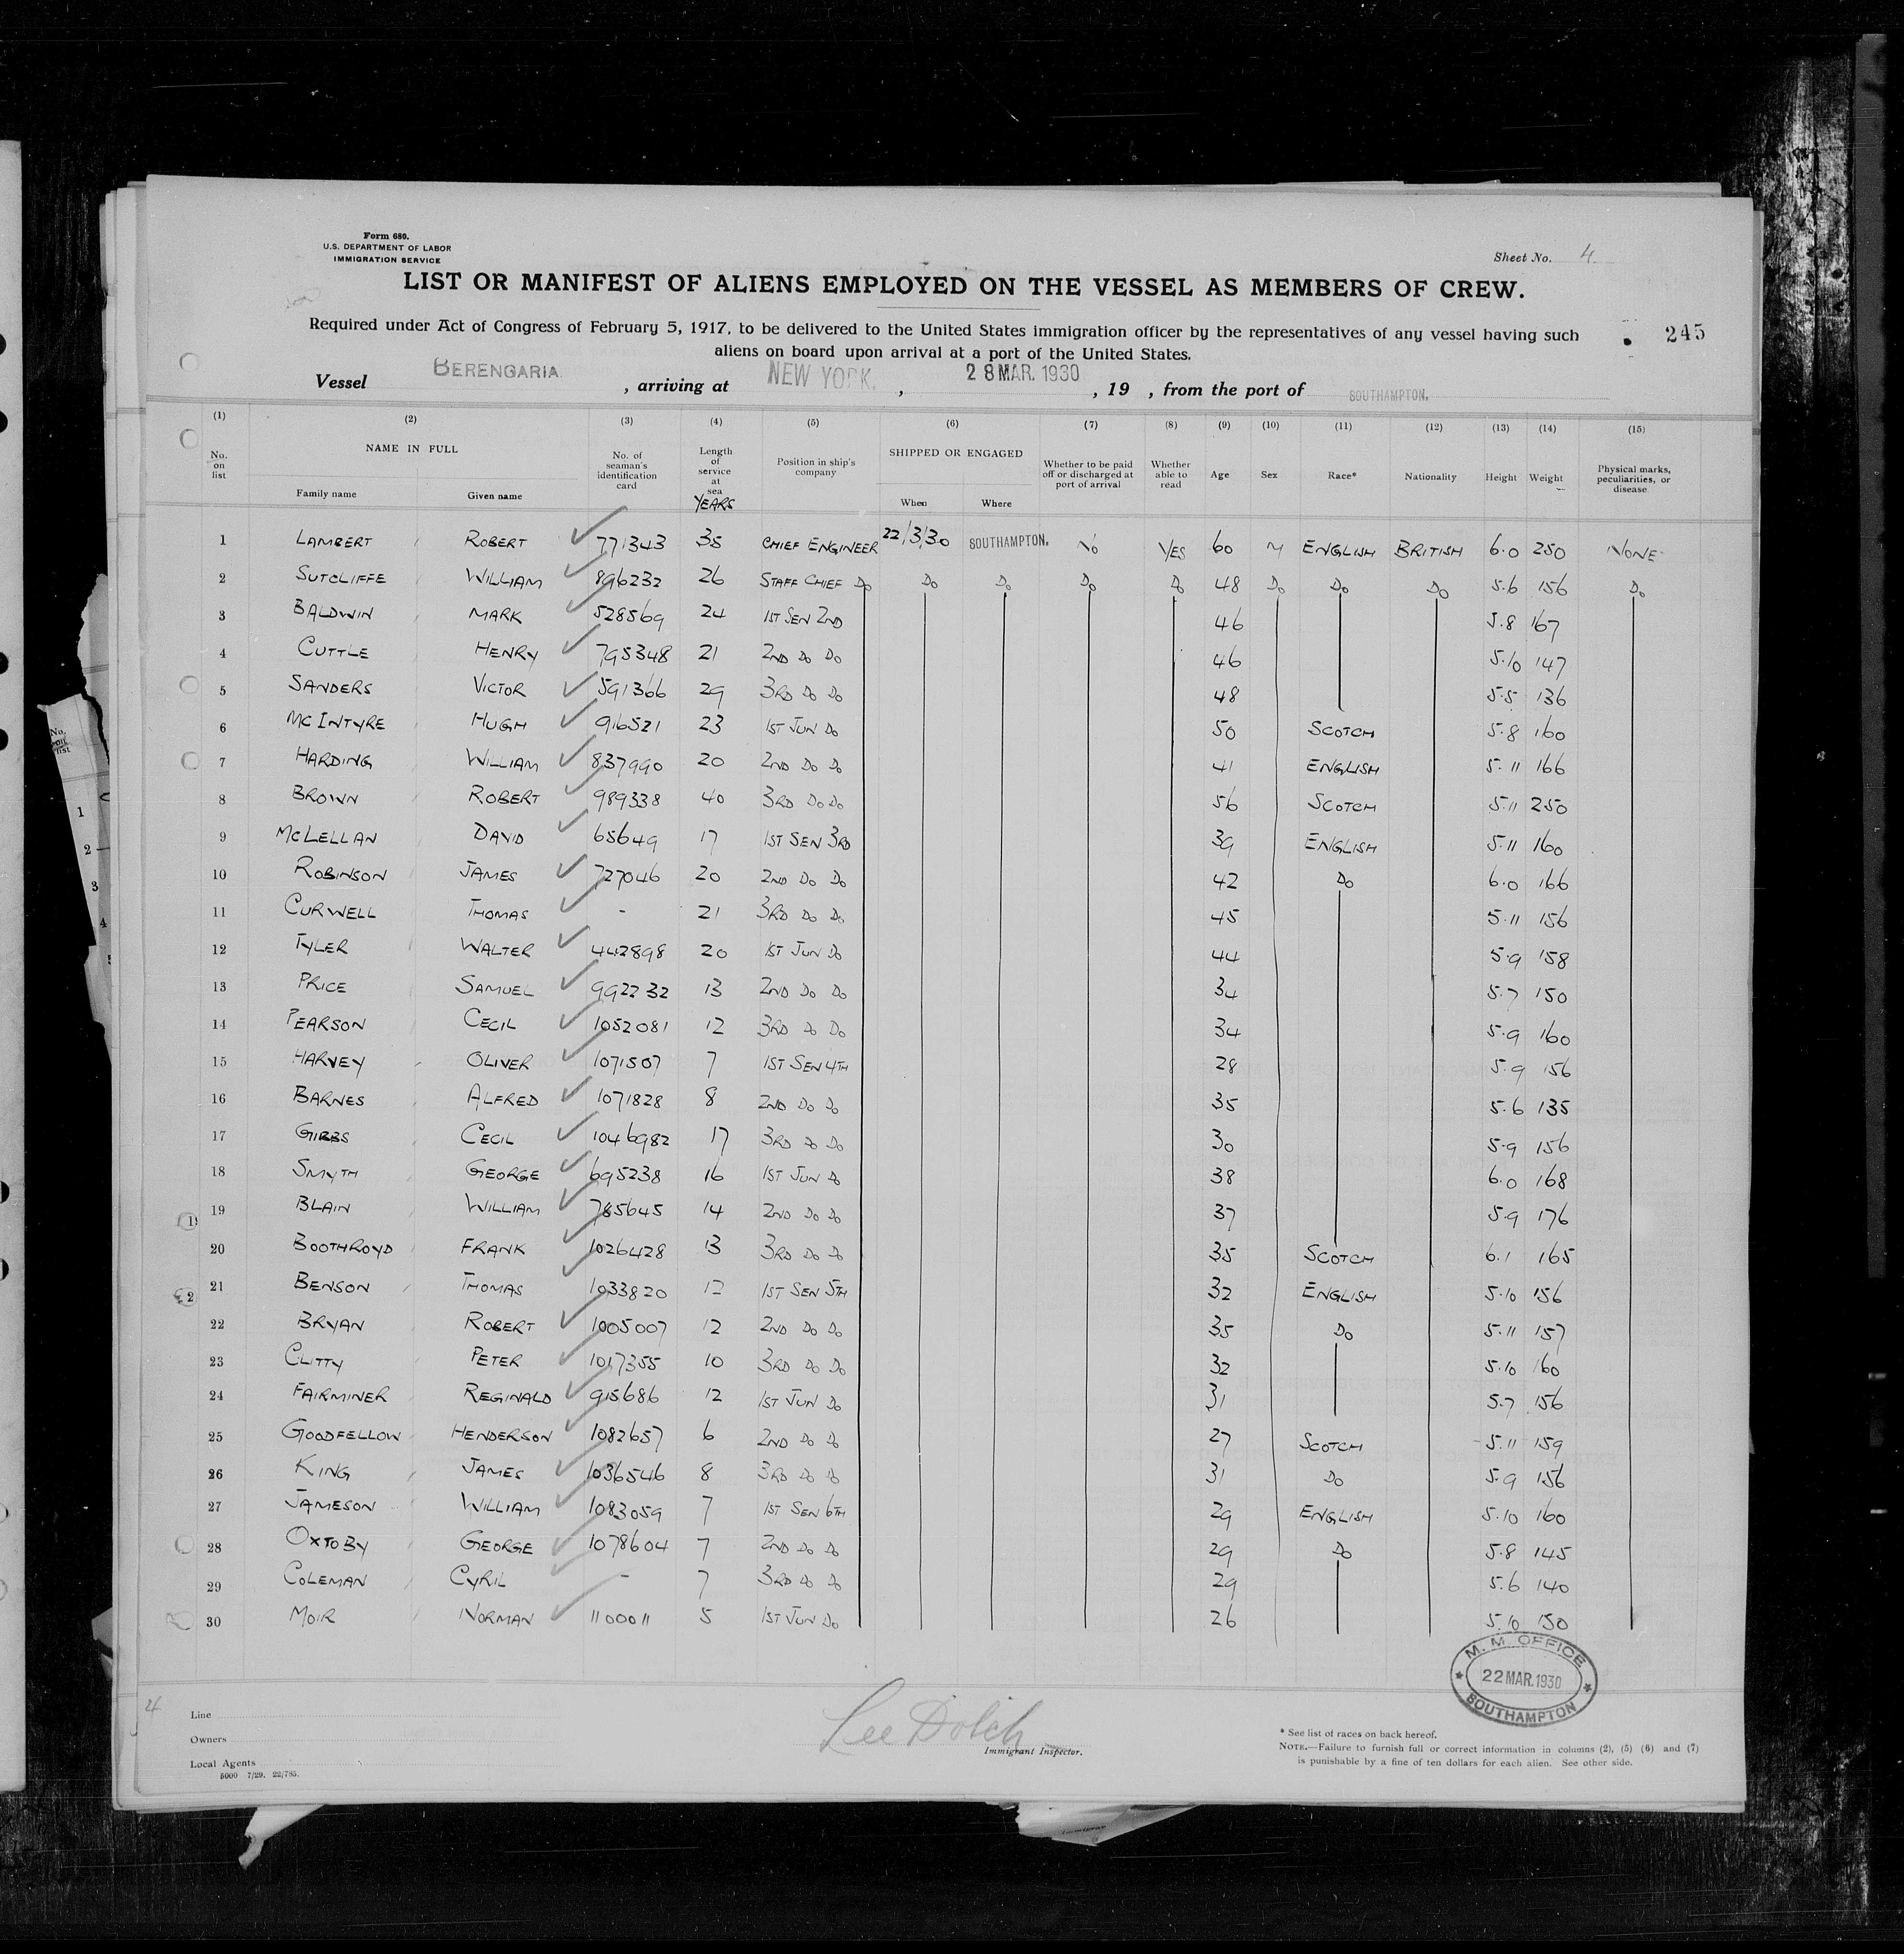 Form 680.
U.S. DEPARTMENT OF LABOR
IMMIGRATION SERVICE
Sheet No. 4.
LIST OR MANIFEST OF ALIENS EMPLOYED ON THE VESSEL AS MEMBERS OF CREW.
Required under Act of Congress of February 5, 1917, to be delivered to the United States immigration officer by the representatives of any vessel having such
aliens on board upon arrival at a port of the United States.
245
Vessel BERENGARIA , arriving at NEW YORK. , 28 MAR. 1930 , 19 , from the port of SOUTHAMPTON.
(1) (2) (3) (4) (5) (6) (7) (8) (9) (10) (11) (12) (13) (14) (15)
No. on list NAME IN FULL Family name Given name No. of seaman's identification card Length of service at sea YEARS Position in ship's company SHIPPED OR ENGAGED When Where Whether to be paid off or discharged at port of arrival Whether able to read Age Sex Race* Nationality Height Weight Physical marks, peculiarities, or disease
1 LAMBERT ROBERT 771343 35 CHIEF ENGINEER 22/3/30 SOUTHAMPTON. NO YES 60 M ENGLISH BRITISH 6.0 250 NONE
2 SUTCLIFFE WILLIAM 896232 26 STAFF CHIEF DO DO DO DO DO 48 DO DO DO 5.6 156 DO
3 BALDWIN MARK 528569 24 1ST SEN 2ND 46 5.8 167
4 CUTTLE HENRY 795348 21 2ND DO DO 46 5.10 147
5 SANDERS VICTOR 591366 29 3RD DO DO 48 5.5 136
6 MCINTYRE HUGH 916521 23 1ST JUN DO 50 SCOTCH 5.8 160
7 HARDING WILLIAM 837990 20 2ND DO DO 41 ENGLISH 5.11 166
8 BROWN ROBERT 989338 40 3RD DO DO 56 SCOTCH 5.11 250
9 MCLELLAN DAVID 65649 17 1ST SEN 3RD 39 ENGLISH 5.11 160
10 ROBINSON JAMES 727046 20 2ND DO DO 42 DO 6.0 166
11 CURWELL THOMAS - 21 3RD DO DO 45 5.11 156
12 TYLER WALTER 442898 20 1ST JUN DO 44 5.9 158
13 PRICE SAMUEL 992232 13 2ND DO DO 34 5.7 150
14 PEARSON CECIL 1052081 12 3RD DO DO 34 5.9 160
15 HARVEY OLIVER 1071507 7 1ST SEN 4TH 28 5.9 156
16 BARNES ALFRED 1071828 8 2ND DO DO 35 5.6 135
17 GIBBS CECIL 1046982 17 3RD DO DO 30 5.9 156
18 SMYTH GEORGE 695238 16 1ST JUN DO 38 6.0 168
19 BLAIN WILLIAM 785645 14 2ND DO DO 37 5.9 176
20 BOOTHROYD FRANK 1026428 13 3RD DO DO 35 SCOTCH 6.1 165
21 BENSON THOMAS 1033820 12 1ST SEN 5TH 32 ENGLISH 5.10 156
22 BRYAN ROBERT 1005007 12 2ND DO DO 35 DO 5.11 157
23 CLITTY PETER 1017355 10 3RD DO DO 32 5.10 160
24 FAIRMINER REGINALD 915686 12 1ST JUN DO 31 5.7 156
25 GOODFELLOW HENDERSON 1082657 6 2ND DO DO 27 SCOTCH 5.11 159
26 KING JAMES 1036546 8 3RD DO DO 31 DO 5.9 156
27 JAMESON WILLIAM 1083059 7 1ST SEN 6TH 29 ENGLISH 5.10 160
28 OXTOBY GEORGE 1078604 7 2ND DO DO 29 DO 5.8 145
29 COLEMAN CYRIL - 7 3RD DO DO 29 5.6 140
30 MOIR NORMAN 1100011 5 1ST JUN DO 26 5.10 150
M. M. OFFICE
22 MAR. 1930
SOUTHAMPTON
4
Line
Owners
Local Agents
5000 7/29. 22/785.
Lee Dolch
Immigrant Inspector.
* See list of races on back hereof.
NOTE.—Failure to furnish full or correct information in columns (2), (5) (6) and (7)
is punishable by a fine of ten dollars for each alien. See other side.